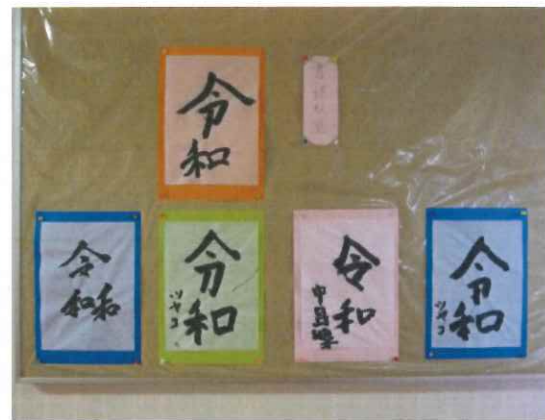 令和
令和和
令和
ツヤコ
令和
令和
ツヤコ